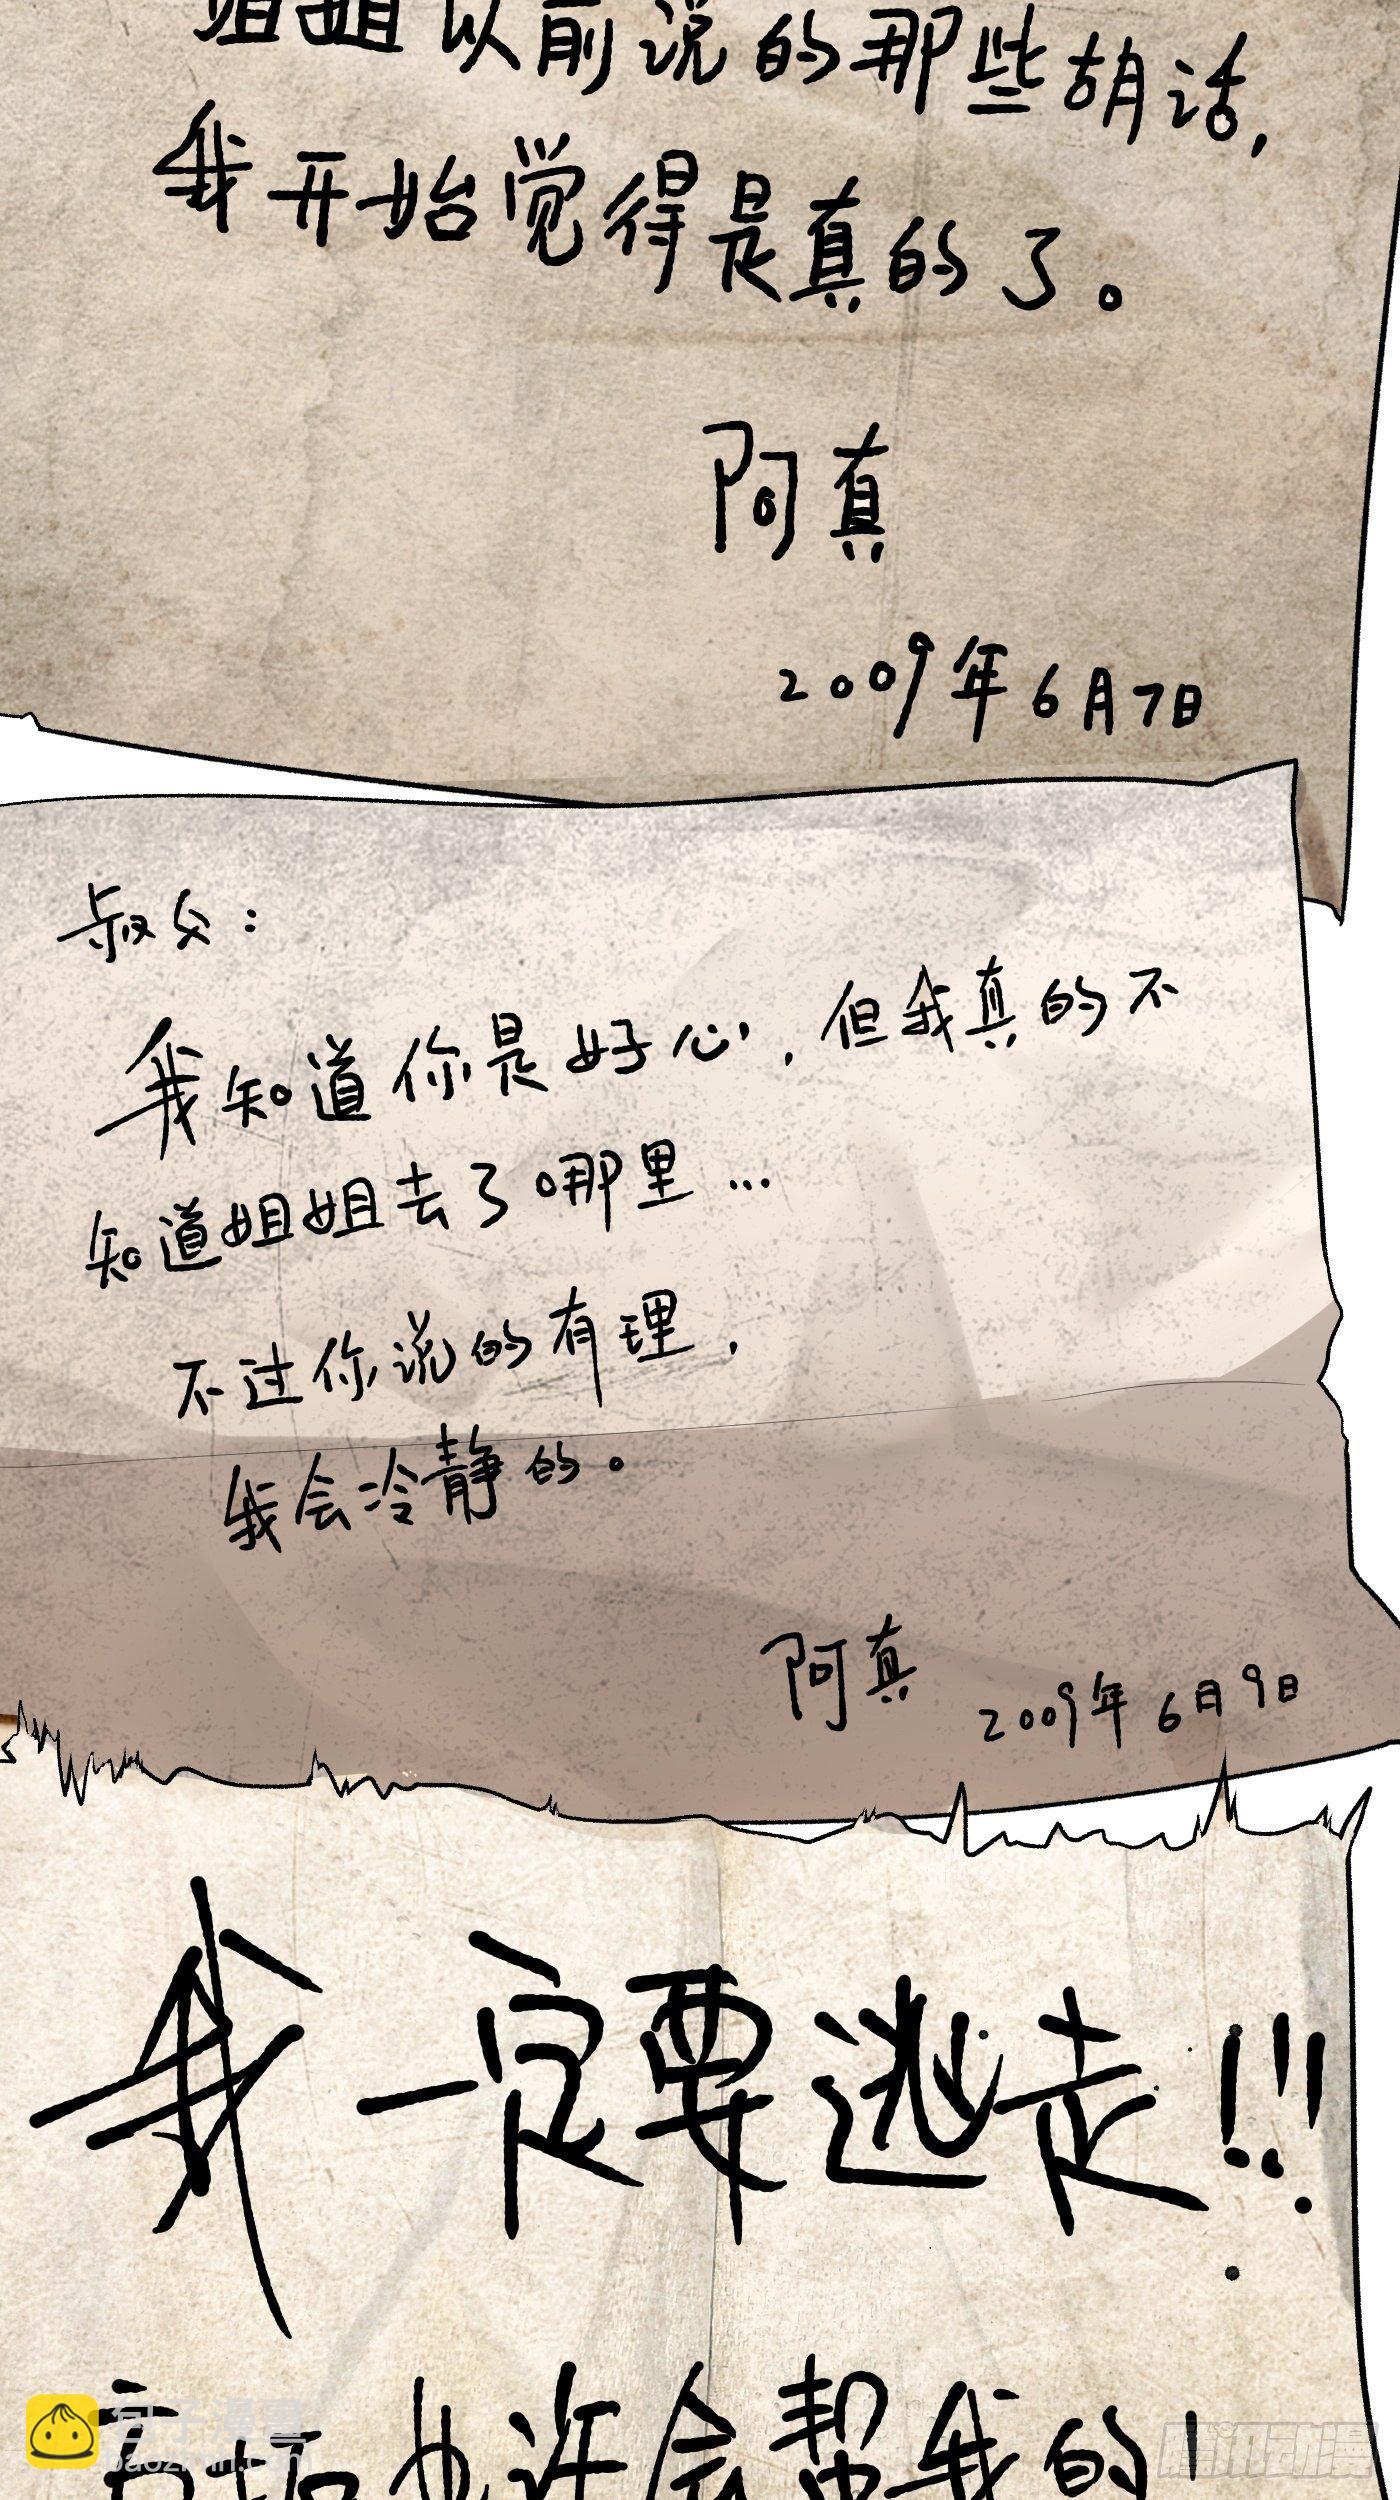 姐姐以前说的那些胡话,
我开始觉得是真的了。
阿真
2009年6月7日
叔父:
我知道你是好心,但我真的不
知道姐姐去了哪里…
不过你说的有理,
我会冷静的。
阿真
2009年6月9日
我一定要逃走!!!
也许会帮我的!
包子漫画
baozimh.com
腾讯动漫